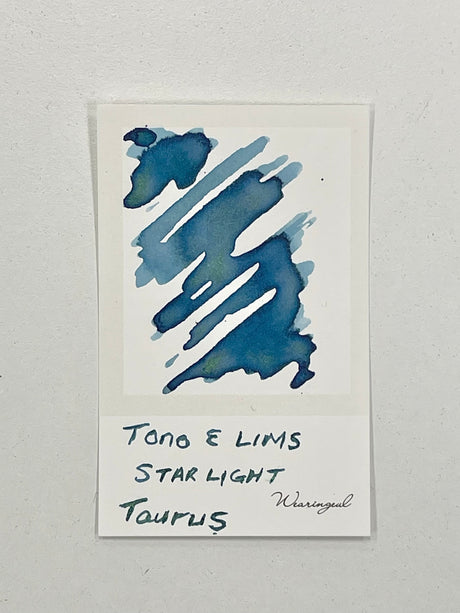 Tono & LIMS
STAR LIGHT
Taurus
Wearingeul